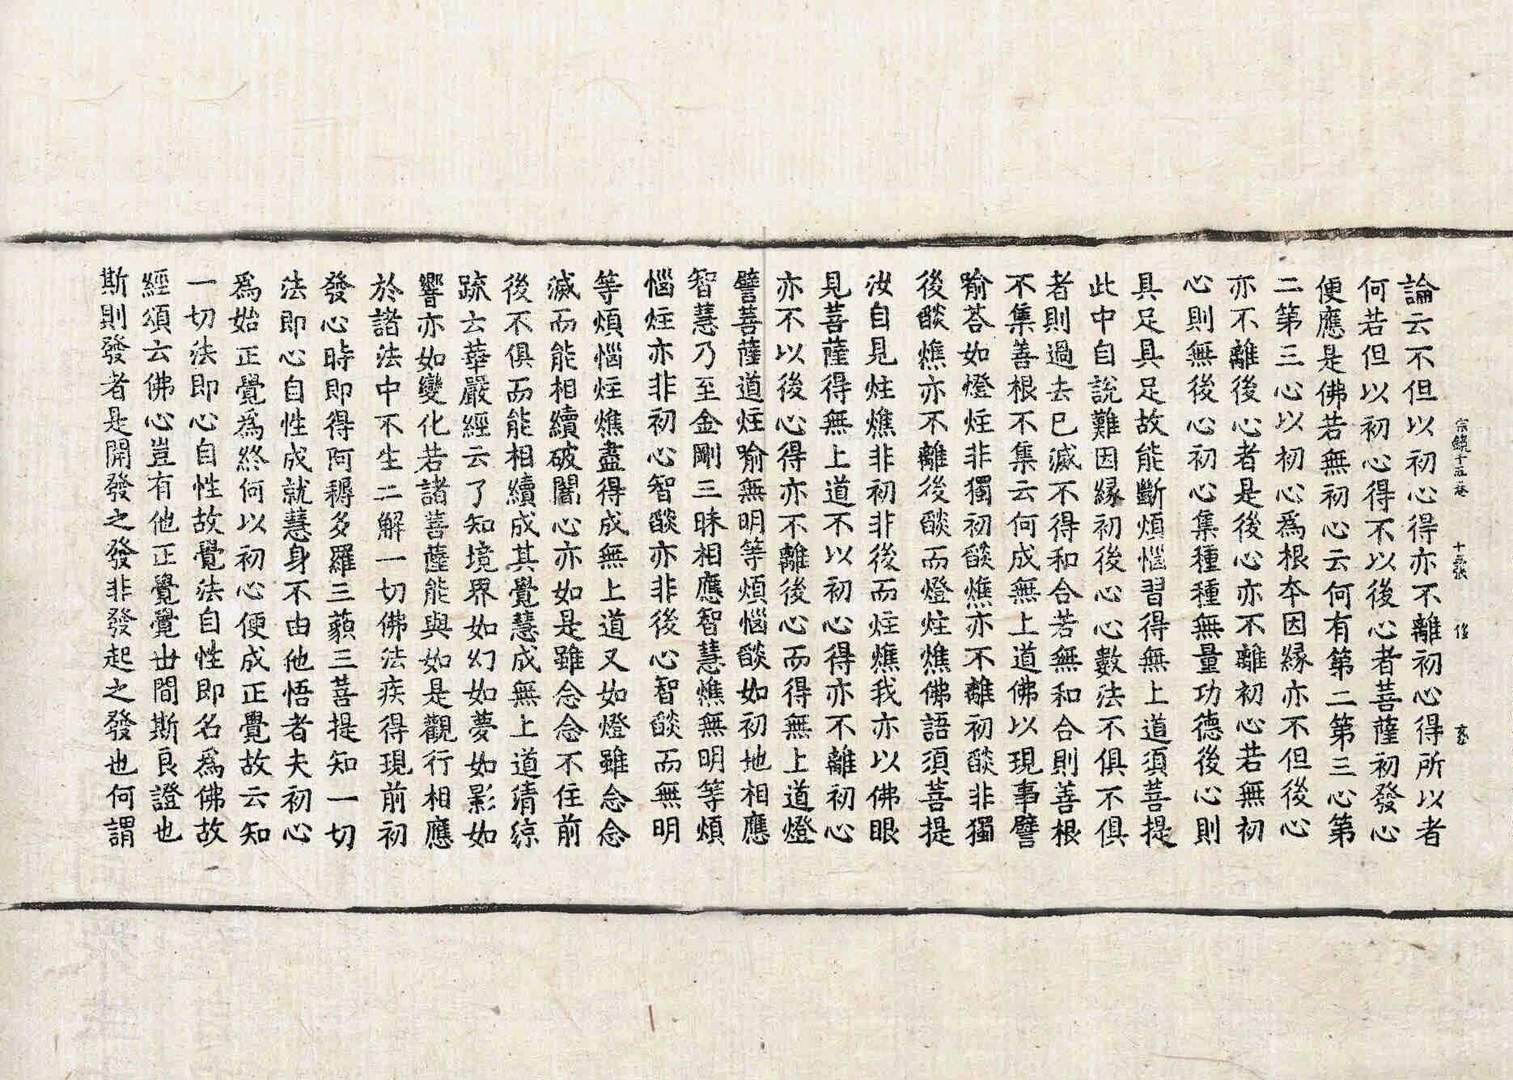 論云不但以初心得亦不離初心得所以者
何若但以初心得不以後心者菩薩初發心
便應是佛若無初心云何有第二第三心第
二第三心以初心爲根本因緣亦不但後心
亦不離後心者是後心亦不離初心若無初
心則無後心初心集種種無量功德後心則
具足具足故能斷煩惱習得無上道須菩提
此中自說難因緣初後心心數法不俱不俱
者則過去已滅不得和合若無和合則善根
不集善根不集云何成無上道佛以現事譬
喻荅如燈炷非獨初燄燋亦不離初燄非獨
後燄燋亦不離後燄而燈炷燋佛語須菩提
汝自見炷燋非初非後而炷燋我亦以佛眼
見菩薩得無上道不以初心得亦不離初心
亦不以後心得亦不離後心而得無上道燈
譬菩薩道炷喻無明等煩惱燄如初地相應
智慧乃至金剛三昧相應智慧燋無明等煩
惱炷亦非初心智燄亦非後心智燄而無明
等煩惱炷燋盡得成無上道又如燈雖念念
滅而能相續破闇心亦如是雖念念不住前
後不俱而能相續成其覺慧成無上道清涼
疏云華嚴經云了知境界如幻如夢如影如
響亦如變化若諸菩薩能與如是觀行相應
於諸法中不生二解一切佛法疾得現前初
發心時即得阿耨多羅三藐三菩提知一切
法即心自性成就慧身不由他悟者夫初心
爲始正覺爲終何以初心便成正覺故云知
一切法即心自性故覺法自性即名爲佛故
經頌云佛心豈有他正覺覺丗間斯良證也
斯則發者是開發之發非發起之發也何謂